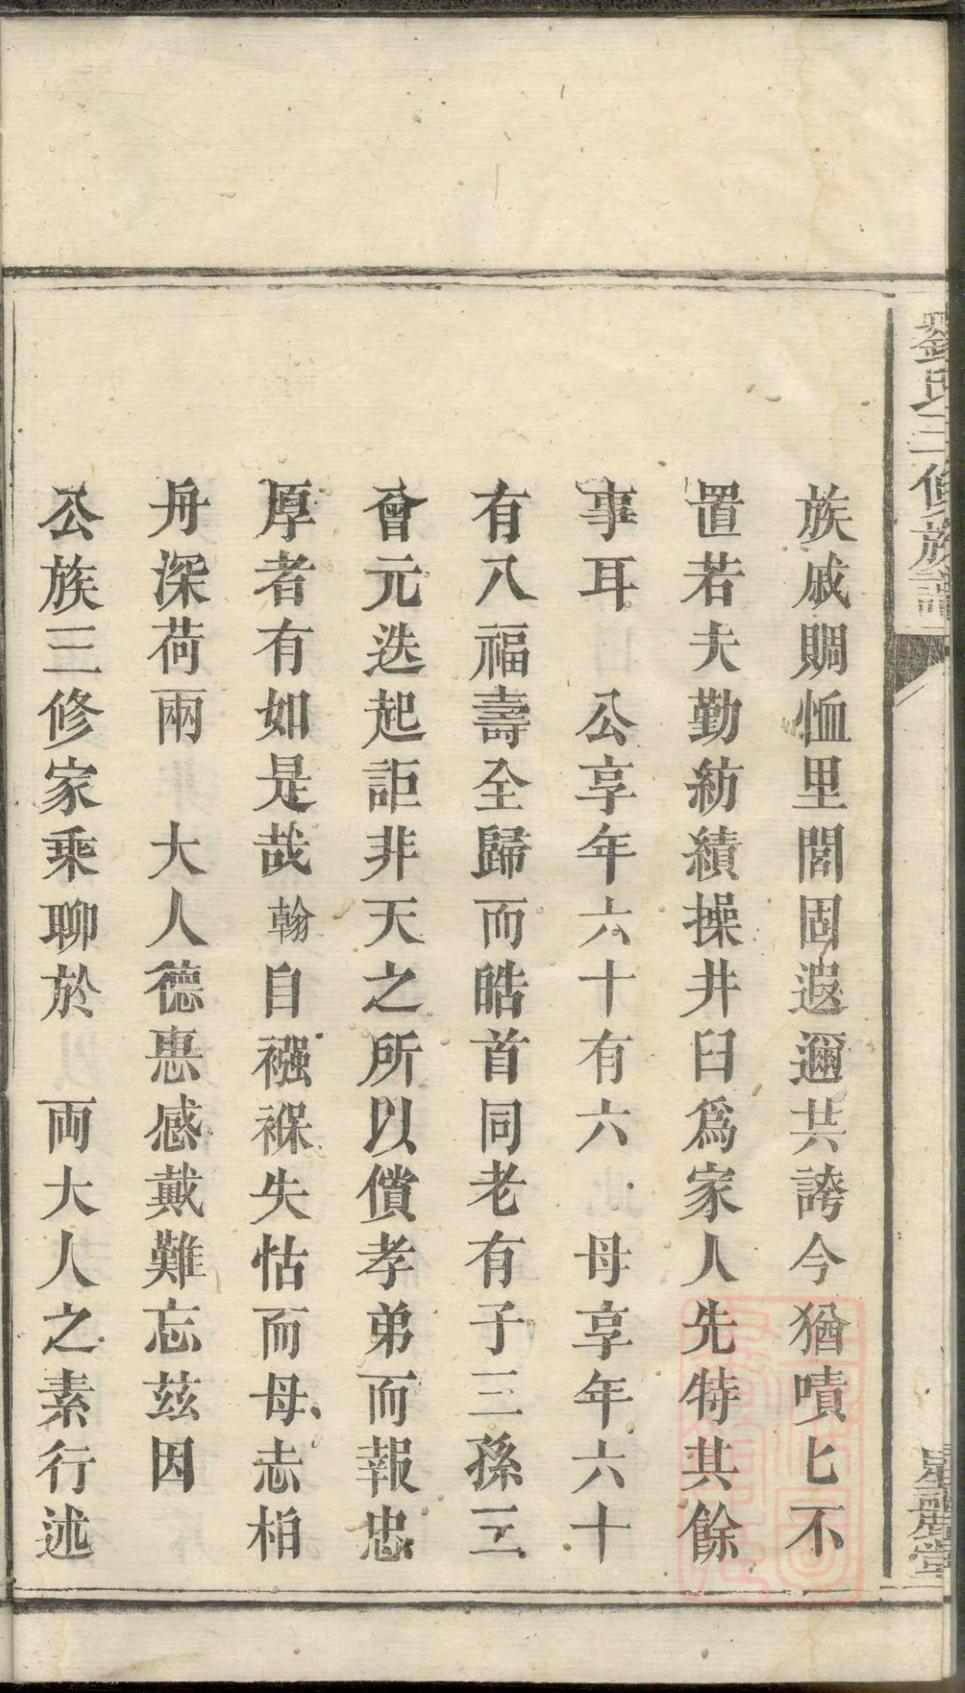 劉氏三修族譜
族戚賙恤里閭固遐邇共誇今猶嘖匕不
置若夫勤紡績操井臼爲家人先特其餘
事耳　公享年六十有六　母享年六十
有八福壽全歸而皓首同老有子三孫三
會元迭起詎非天之所以償孝弟而報忠
厚者有如是哉翰自襁褓失怙而母志柏
舟深荷兩　大人德惠感戴難忘茲因
公族三修家乘聊於　両大人之素行述